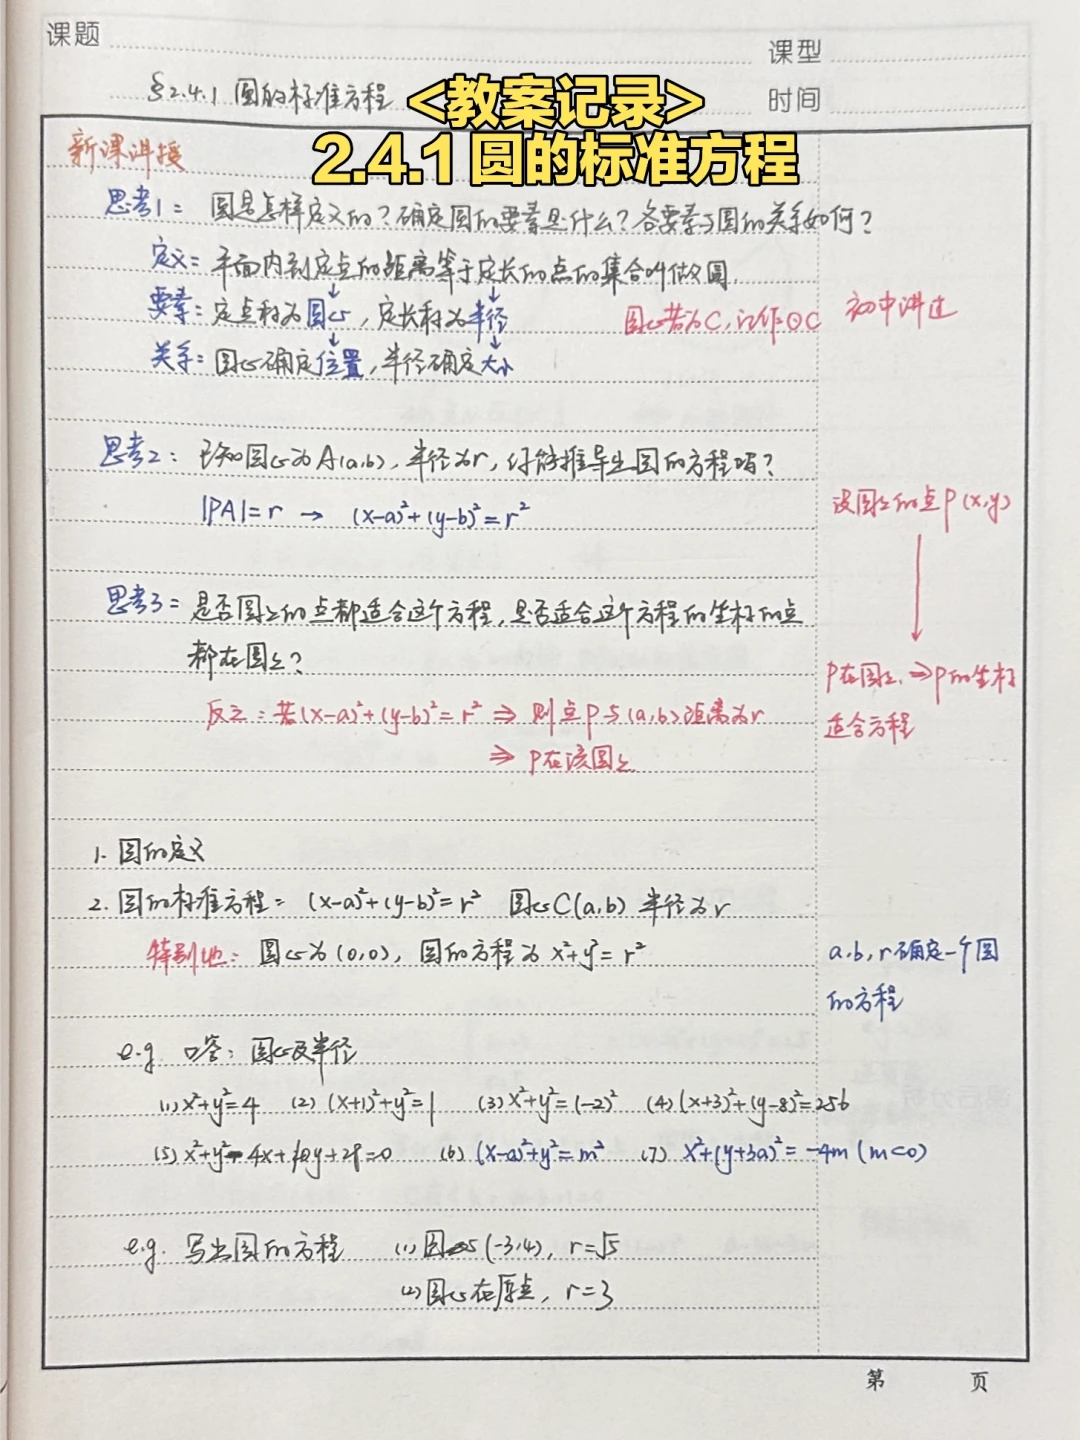 课题
课型
§2.4.1 圆的标准方程
<教案记录>
时间
2.4.1圆的标准方程
新课讲授
思考1: 圆是怎样定义的?确定圆的要素是什么?各要素与圆的关系如何?
定义: 平面内到定点的距离等于定长的点的集合叫做圆
要素: 定点称为圆心, 定长称为半径
圆心若为C, 记作⊙C
初中讲过
关系: 圆心确定位置, 半径确定大小
思考2: 已知圆心为A(a,b), 半径为r, 你能推导出圆的方程吗?
|PA|=r → (x-a)²+(y-b)²=r²
设圆上的点P(x,y)
思考3: 是否圆上的点都适合这个方程, 是否适合这个方程的坐标的点
都在圆上?
P在圆上 ⇒ P的坐标
适合方程
反之: 若(x-a)²+(y-b)²=r² ⇒ 则点P与(a,b)距离为r
⇒ P在该圆上
1. 圆的定义
2. 圆的标准方程: (x-a)²+(y-b)²=r² 圆心C(a,b) 半径为r
特别地: 圆心为(0,0), 圆的方程为 x²+y²=r²
a,b,r确定一个圆
的方程
e.g. 口答: 圆心及半径
(1) x²+y²=4 (2) (x+1)²+y²=1 (3) x²+y²=(-2)² (4) (x+3)²+(y-8)²=256
(5) x²+y²-4x+10y+28=0 (6) (x-a)²+y²=m² (7) x²+(y+3a)²=-4m (m<0)
e.g. 写出圆的方程 (1) 圆心(-3,4), r=√5
(2) 圆心在原点, r=3
第 页